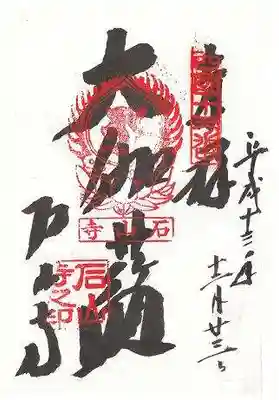 平成十三年
十二月廿三日
奉拝
西國十三番
大伽藍
石山寺
石山寺
石山
寺之印